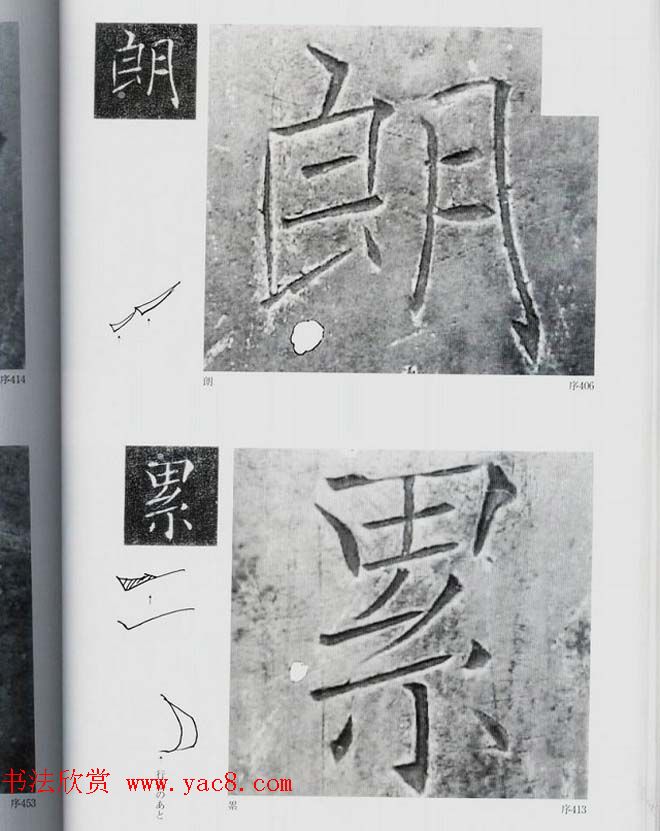 朗
朗
序414
朗
序406
累
累
序453
累
序413
书法欣赏 www.yac8.com